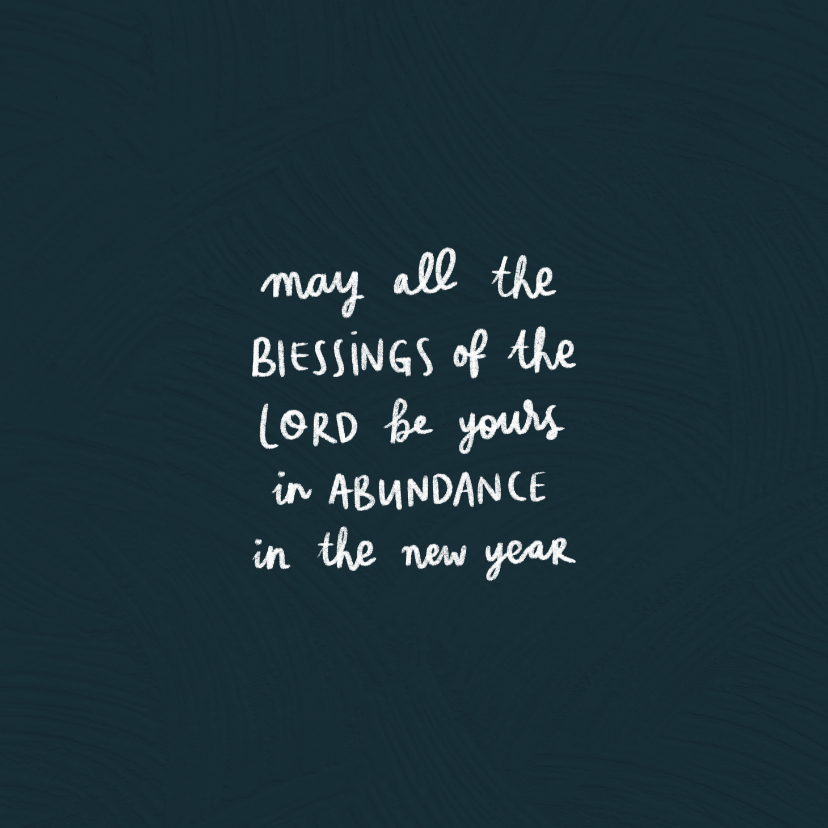 may all the
BLESSINGS of the
LORD be yours
in ABUNDANCE
in the new year